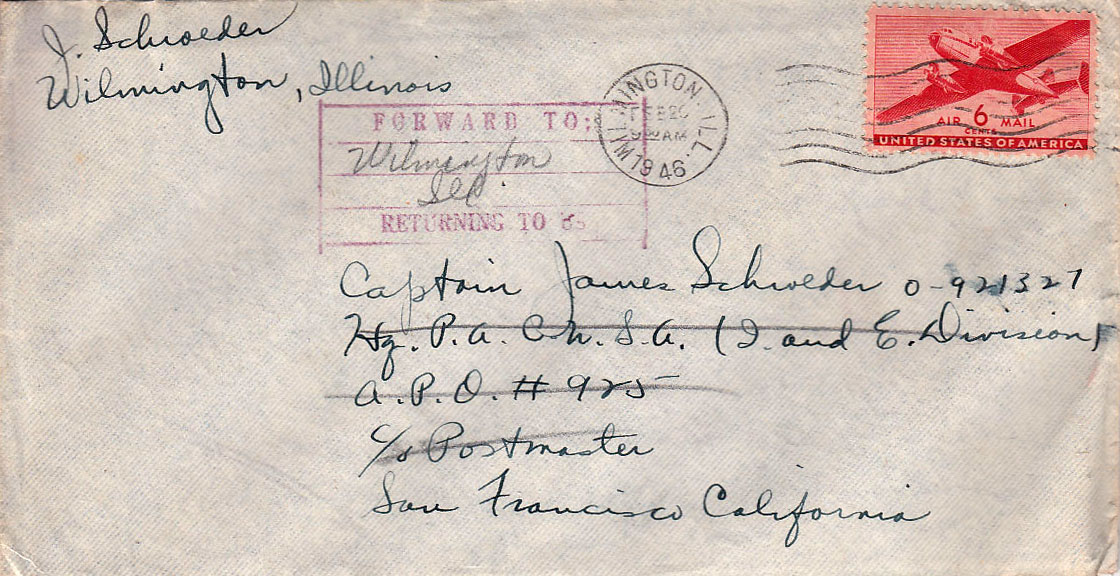 J. Schroeder
Wilmington, Illinois
FORWARD TO:
Wilmington
Ill.
RETURNING TO
WILMINGTON. ILL.
FEB
AM
1946
AIR 6 MAIL
CENTS
UNITED STATES OF AMERICA
Captain James Schroeder O-921327
Hq. P.A. Ch. S.A. (I. and E. Division)
A.P.O. # 925
c/o Postmaster
San Francisco California